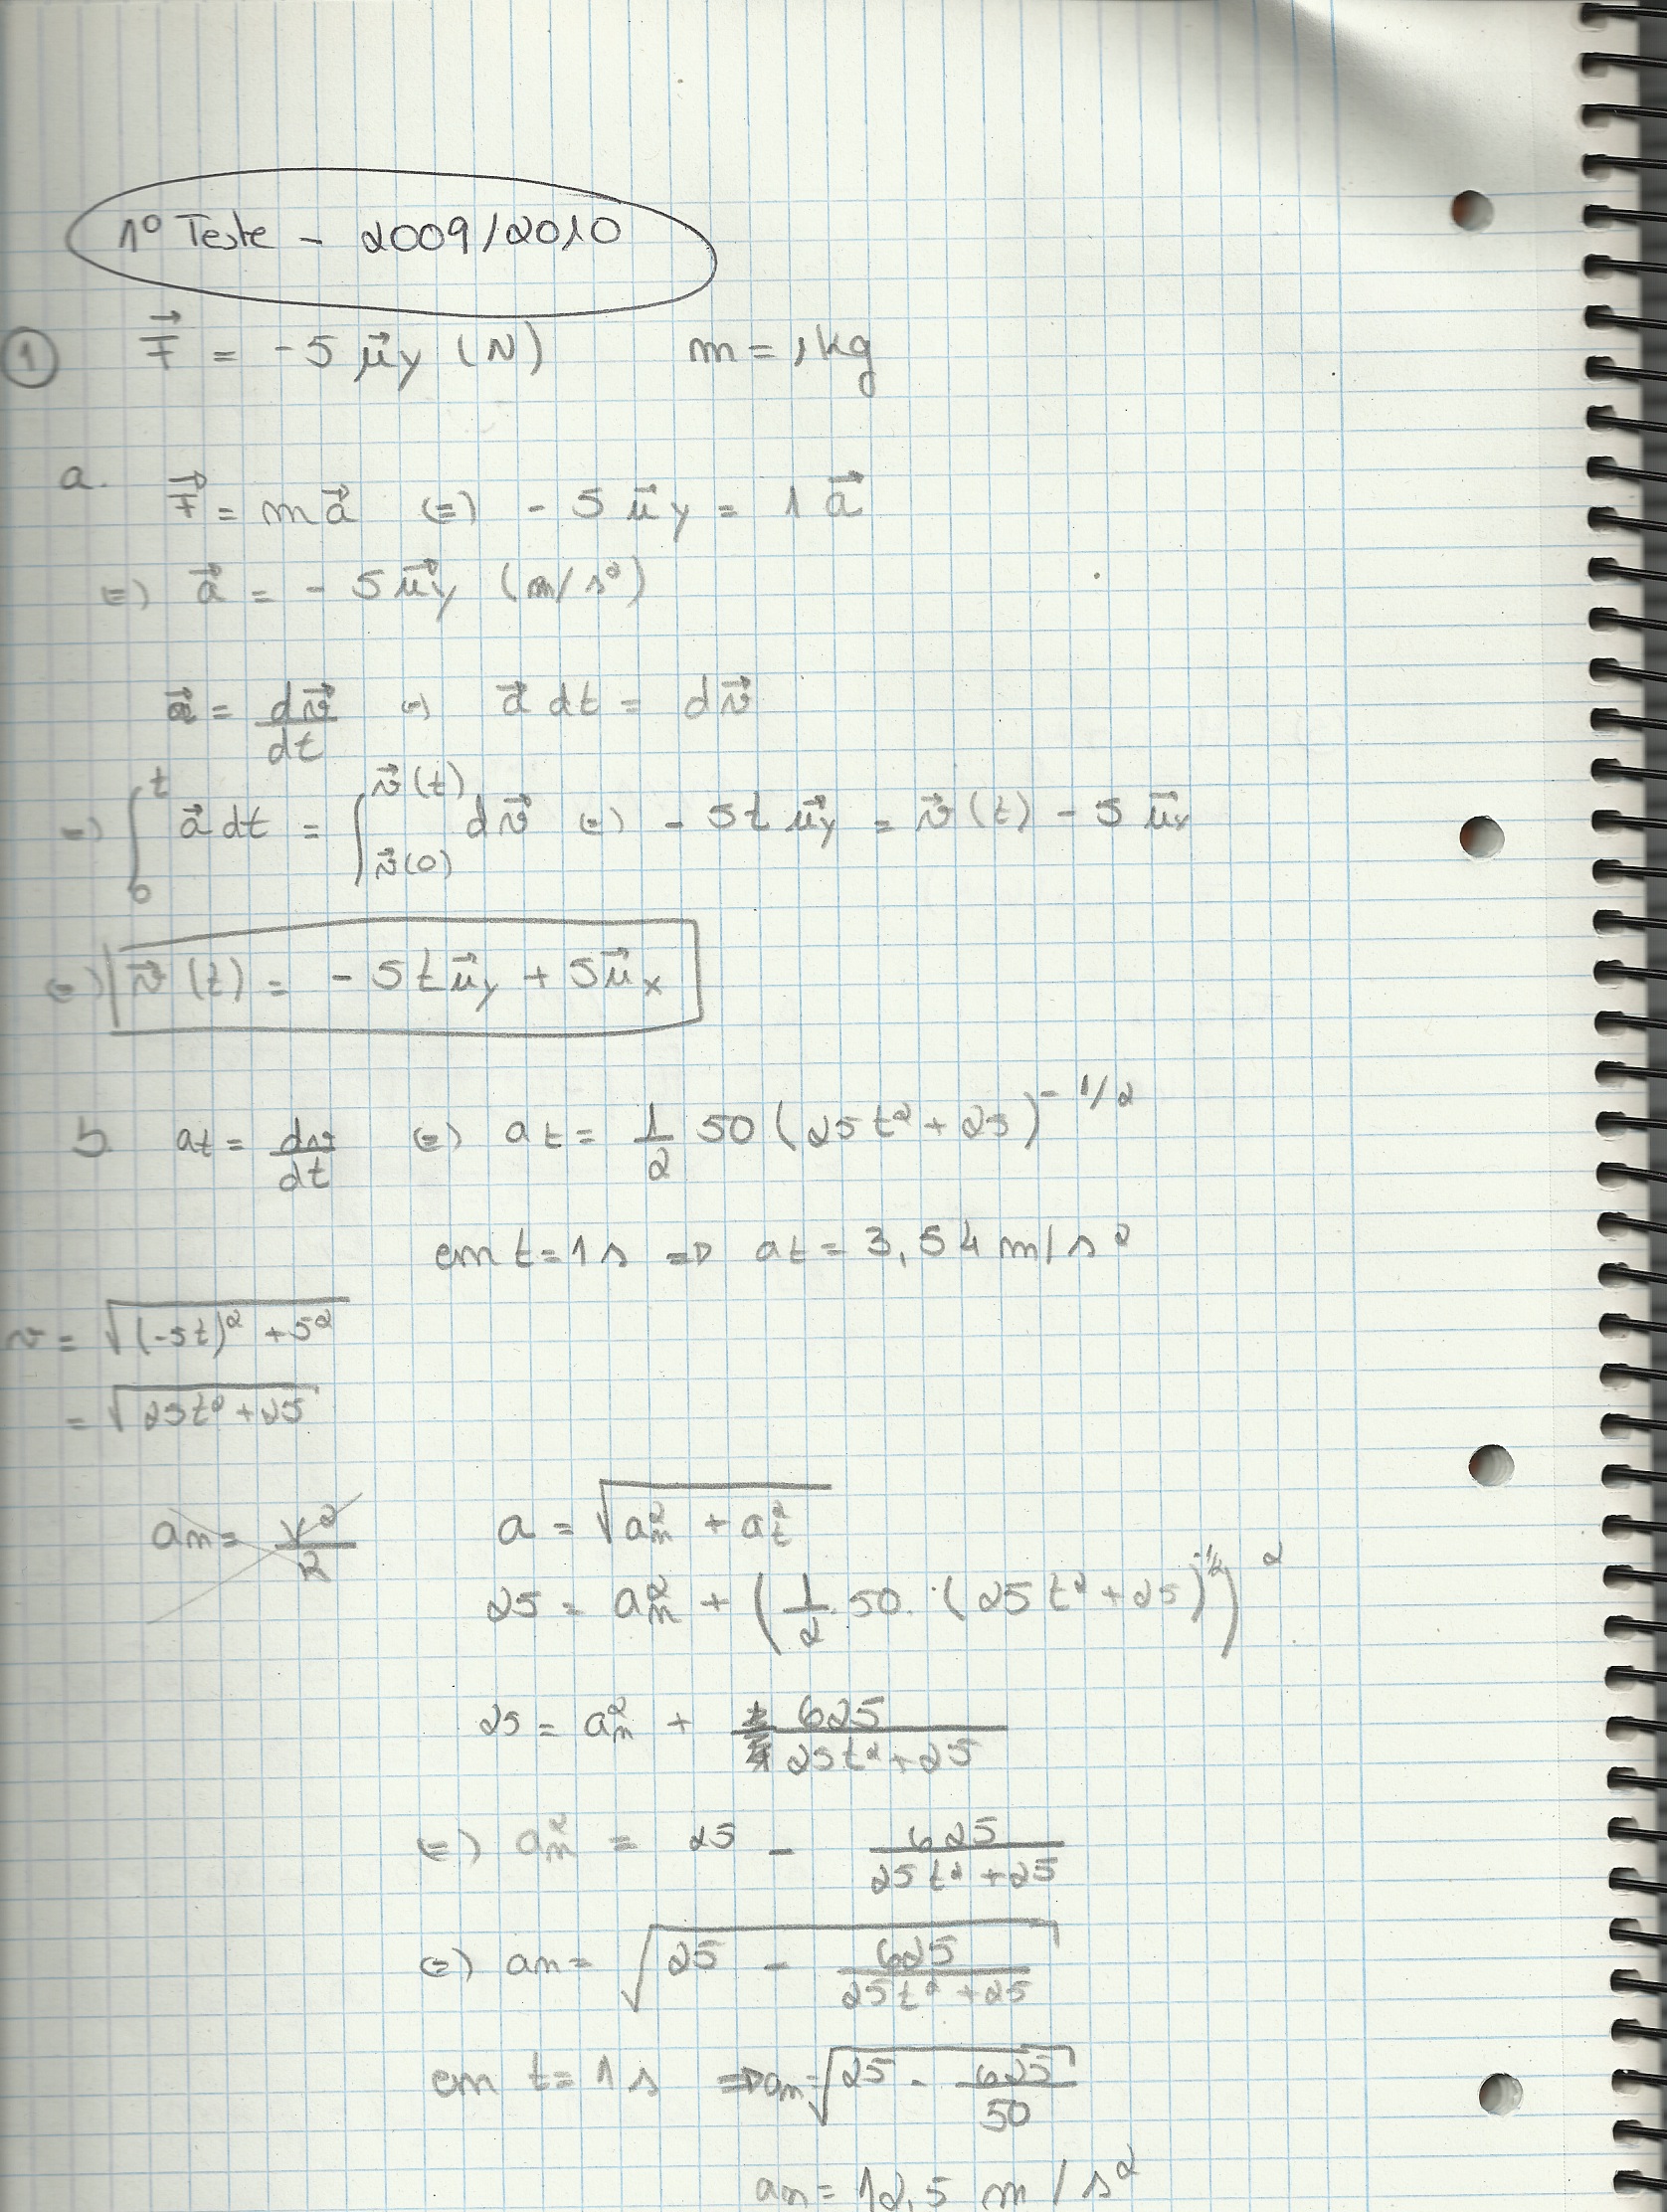 1º Teste - 2009/2010
① F⃗ = -5 μ⃗y (N) m = 1kg
a. F⃗ = m a⃗ (=) - 5 μ⃗y = 1 a⃗
(=) a⃗ = - 5 μ⃗y (m/s²)
a⃗ = dv⃗/dt (=) a⃗ dt = dv⃗
(=) ∫₀^t a⃗ dt = ∫_{v⃗(0)}^{v⃗(t)} dv⃗ (=) - 5t μ⃗y = v⃗(t) - 5 μ⃗x
(=) v⃗(t) = - 5t μ⃗y + 5 μ⃗x
b. at = dv/dt (=) at = 1/2 50 (25t² + 25)^(-1/2)
em t = 1 s => at = 3,54 m/s²
v = √((-5t)² + 5²)
= √(25t² + 25)
an = v²/R a = √(an² + at²)
25 = an² + (1/2 · 50 · (25t² + 25)^(-1/2))²
25 = an² + 625/(25t² + 25)
(=) an² = 25 - 625/(25t² + 25)
(=) an = √(25 - 625/(25t² + 25))
em t = 1 s => an = √(25 - 625/50)
an = 12,5 m/s²